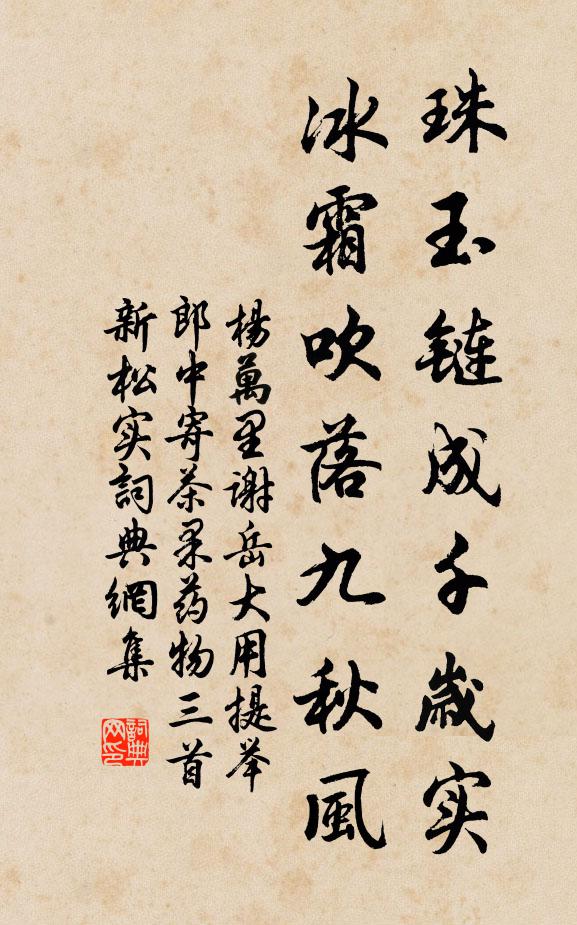 珠玉链成千歲实
冰霜吹落九秋風
楊萬里谢岳大用提举
郎中寄茶果药物三首
新松实詞典網集
詞典网印